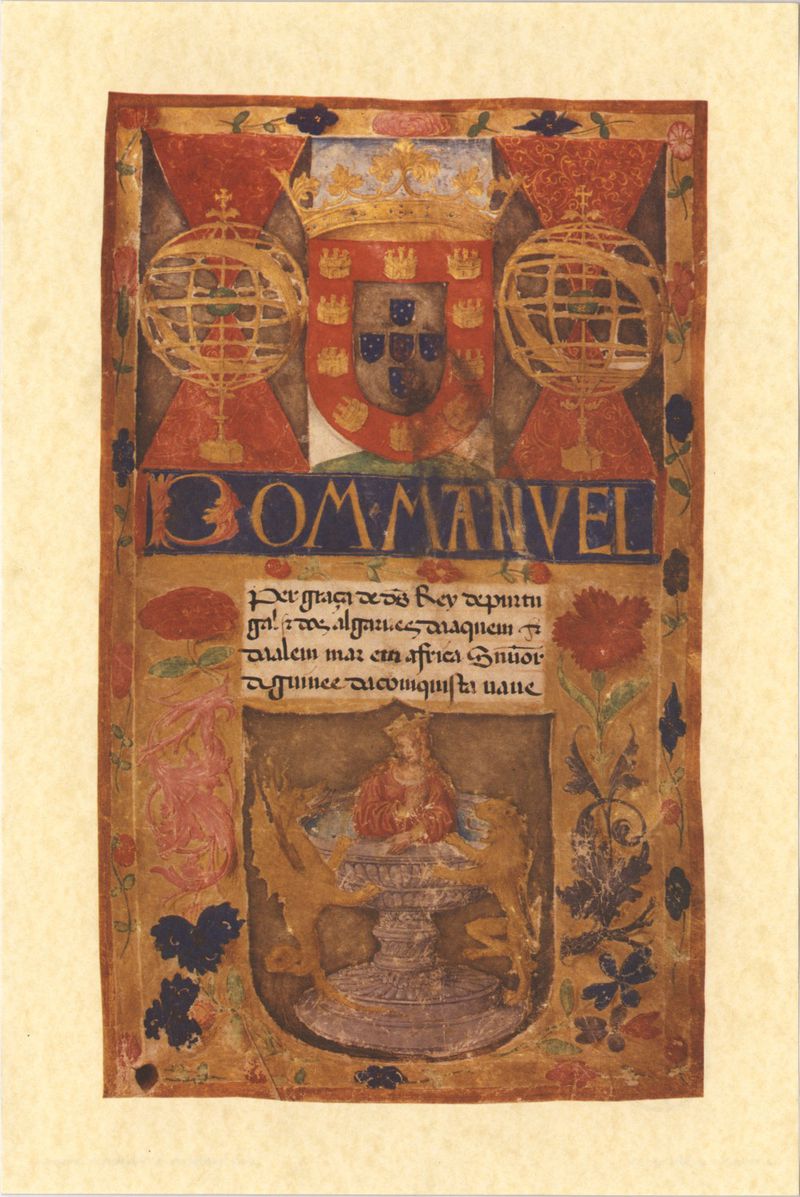 DOM·MANVEL
Per graça de ds Rey de purtu
gal & dos algarues daaquem &
daalem mar em africa Snñor
de guinee da comquista naue